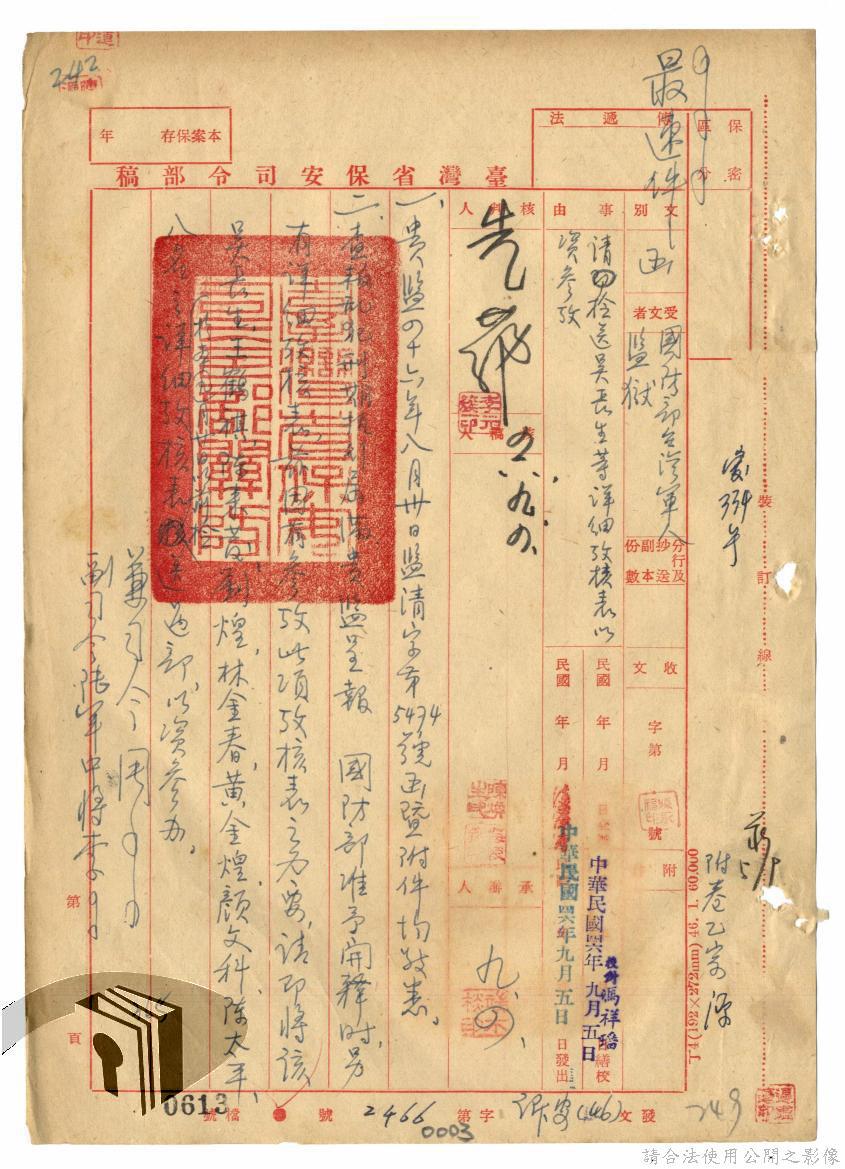 242
本案保存 年
臺灣省保安司令部稿
保密
區分
傳遞法
最速件
文別
函
受文者
國防部台灣軍人
監獄
分行及抄送副本份數
事由
請檢送吳長生等詳細考核表以
資參考
核判人
核稿人
承辦人
九、四、
收文 字第 號
附
民國 年 月
民國 年 月
中華民國四六年九月五日
中華民國四六年九月五日
校對
繕校
日發出
一、貴監四十六年八月卅日監清字第5474號函暨附件均敬悉。
二、查叛亂犯刑期執行屆滿貴監呈報 國防部准予開釋時,另
有詳細考核表,茲因有參考此項考核表之必要,請即將該
吳長生,王鶴棋,陳來,劉煌,林金春,黃金煌,顏文科,陳太平,
八名之詳細考核表送過部,以資參办。
兼司令周
副司令陸軍中將李
第 頁
裝
訂
線
附卷乙宗
0613
發文 (46) 字第 2466 號
檔號
0003
249
請合法使用公開之影像